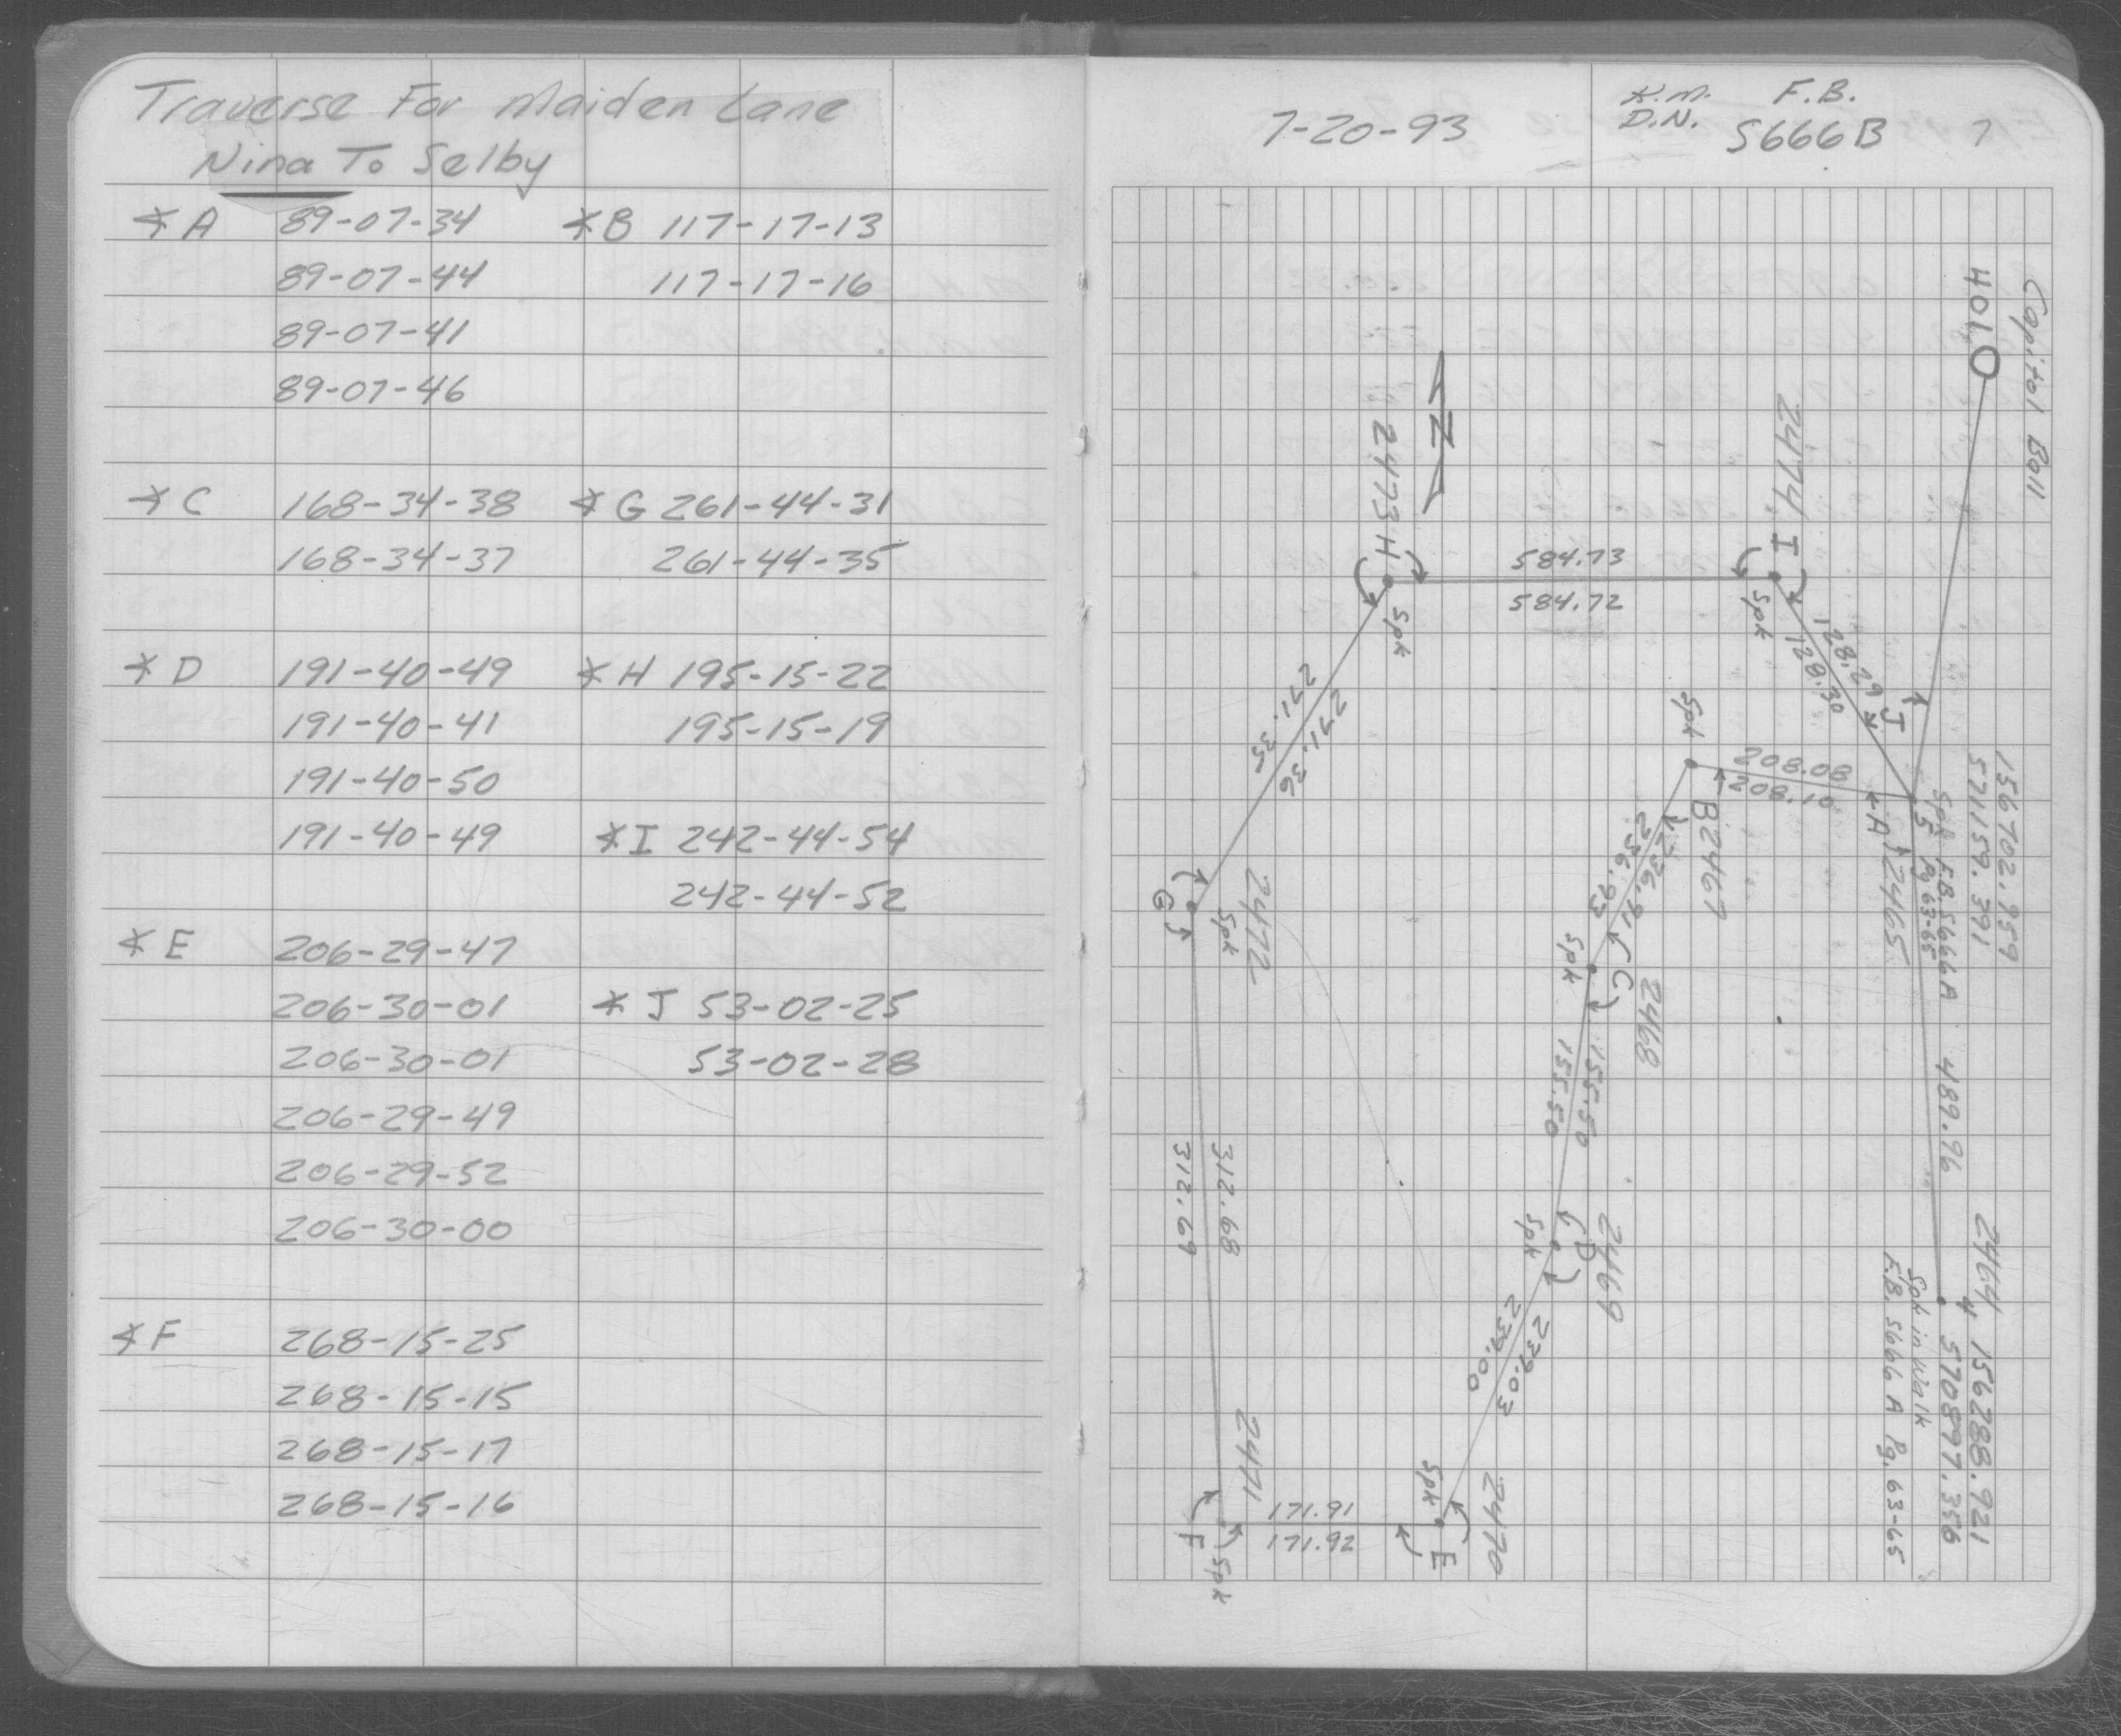 Traverse For Maiden Lane
Nina To Selby
∡ A 89-07-34 ∡ B 117-17-13
89-07-44 117-17-16
89-07-41
89-07-46
∡ C 168-34-38 ∡ G 261-44-31
168-34-37 261-44-35
∡ D 191-40-49 ∡ H 195-15-22
191-40-41 195-15-19
191-40-50
191-40-49 ∡ I 242-44-54
242-44-52
∡ E 206-29-47
206-30-01 ∡ J 53-02-25
206-30-01 53-02-28
206-29-49
206-29-52
206-30-00
∡ F 268-15-25
268-15-15
268-15-17
268-15-16
7-20-93
K.M. F.B.
D.N. 5666B 7
Capitol Ball
401
N
2473 H
Spk
584.73
584.72
2474 I
Spk
128.29
128.30
J
271.35
271.36
Spk
208.08
208.10
B 2467
A
2465
5
Spk F.B. 5666A
Pg 63-65
156702.959
571159.391
236.91
236.93
Spk
C
2468
G
Spk
2472
155.50
155.50
489.96
312.68
312.69
Spk
D
2469
239.03
239.00
2464 156288.921
4 570897.356
Spk in Walk
F.B. 5666A Pg. 63-65
2471
F
Spk
171.91
171.92
Spk
E
2470